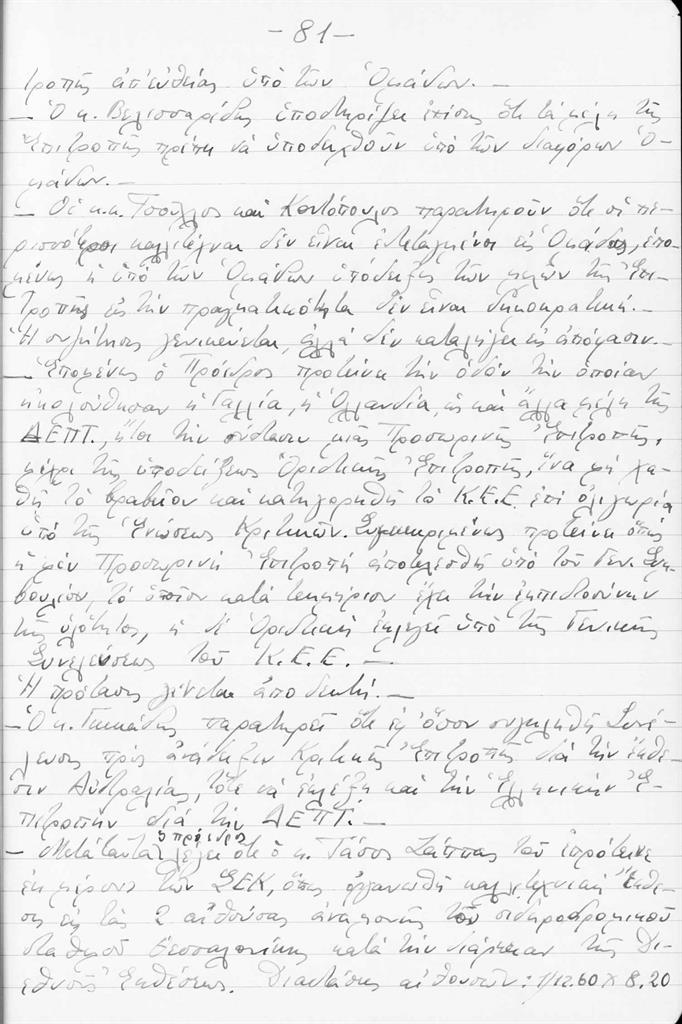 - 81 -
τροπῆς ἀπ' εὐθείας ὑπὸ τῶν Ὁμάδων. -
- Ὁ κ. Βελισσαρίδης ὑποστηρίζει ἐπίσης ὅτι τὰ μέλη τῆς
Ἐπιτροπῆς πρέπει νὰ ὑποδειχθοῦν ὑπὸ τῶν διαφόρων Ὁ-
μάδων. -
- Οἱ κ.κ. Τσοῦχλος καὶ Κοντόπουλος παρατηροῦν ὅτι οἱ πε-
ρισσότεροι καλλιτέχναι δὲν εἶναι ἐντεταγμένοι εἰς Ὁμάδας, ἑπο-
μένως ἡ ὑπὸ τῶν Ὁμάδων ὑπόδειξις τῶν μελῶν τῆς Ἐπι-
τροπῆς εἰς τὴν πραγματικότητα δὲν εἶναι δημοκρατική. -
Ἡ συζήτησις γενικεύεται, ἀλλὰ δὲν καταλήγει εἰς ἀπόφασιν. -
- Ἑπομένως ὁ Πρόεδρος προτείνει τὴν ὁδὸν τὴν ὁποίαν
ἠκολούθησαν ἡ Γαλλία, ἡ Ὁλλανδία, ὡς καὶ ἄλλα μέλη τῆς
ΔΕΠΤ., ἤτοι τὴν σύστασιν μιᾶς Προσωρινῆς Ἐπιτροπῆς,
μέχρι τῆς ὑποδείξεως Ὁριστικῆς Ἐπιτροπῆς, ἵνα μὴ χα-
θῇ τὸ βραβεῖον καὶ κατηγορηθῇ τὸ Κ.Ε.Ε. ἐπὶ ὀλιγωρίᾳ
ὑπὸ τῆς Ἑνώσεως Κριτικῶν. Συγκεκριμένως προτείνει ὅπως
ἡ μὲν Προσωρινὴ Ἐπιτροπὴ ἀποτελεσθῇ ὑπὸ τοῦ Γεν. Συμ-
βουλίου, τὸ ὁποῖον κατὰ τεκμήριον ἔχει τὴν ἐμπιστοσύνην
τῆς ὁλότητος, ἡ δὲ Ὁριστικὴ ἐκλεγεῖ ὑπὸ τῆς Γενικῆς
Συνελεύσεως τοῦ Κ.Ε.Ε. -
Ἡ πρότασις γίνεται ἀποδεκτή. -
- Ὁ κ. παρατηρεῖ ὅτι ἐφ' ὅσον συγκληθῇ Συνέ-
λευσις πρὸς ἀνάδειξιν Κριτικῆς Ἐπιτροπῆς διὰ τὴν ἔκθε-
σιν Αὐστραλίας, τότε νὰ ἐκλέξῃ καὶ τὴν Ἑλληνικὴν Ἐ-
πιτροπὴν διὰ τὴν ΔΕΠΤ. -
- Μετὰ ταῦτα ὁ πρόεδρος λέγει ὅτι ὁ κ. Τάσος Ζάππας τοῦ ἐπρότεινε
ἐκ μέρους τῶν ΣΕΚ, ὅπως ὀργανωθῇ καλλιτεχνικὴ Ἔκθε-
σις εἰς τὰς 2 αἰθούσας ἀναμονῆς τοῦ σιδηροδρομικοῦ
σταθμοῦ Θεσσαλονίκης κατὰ τὴν διάρκειαν τῆς Δι-
εθνοῦς Ἐκθέσεως. Διαστάσεις αἰθουσῶν: 1/12.60 Χ 8.20